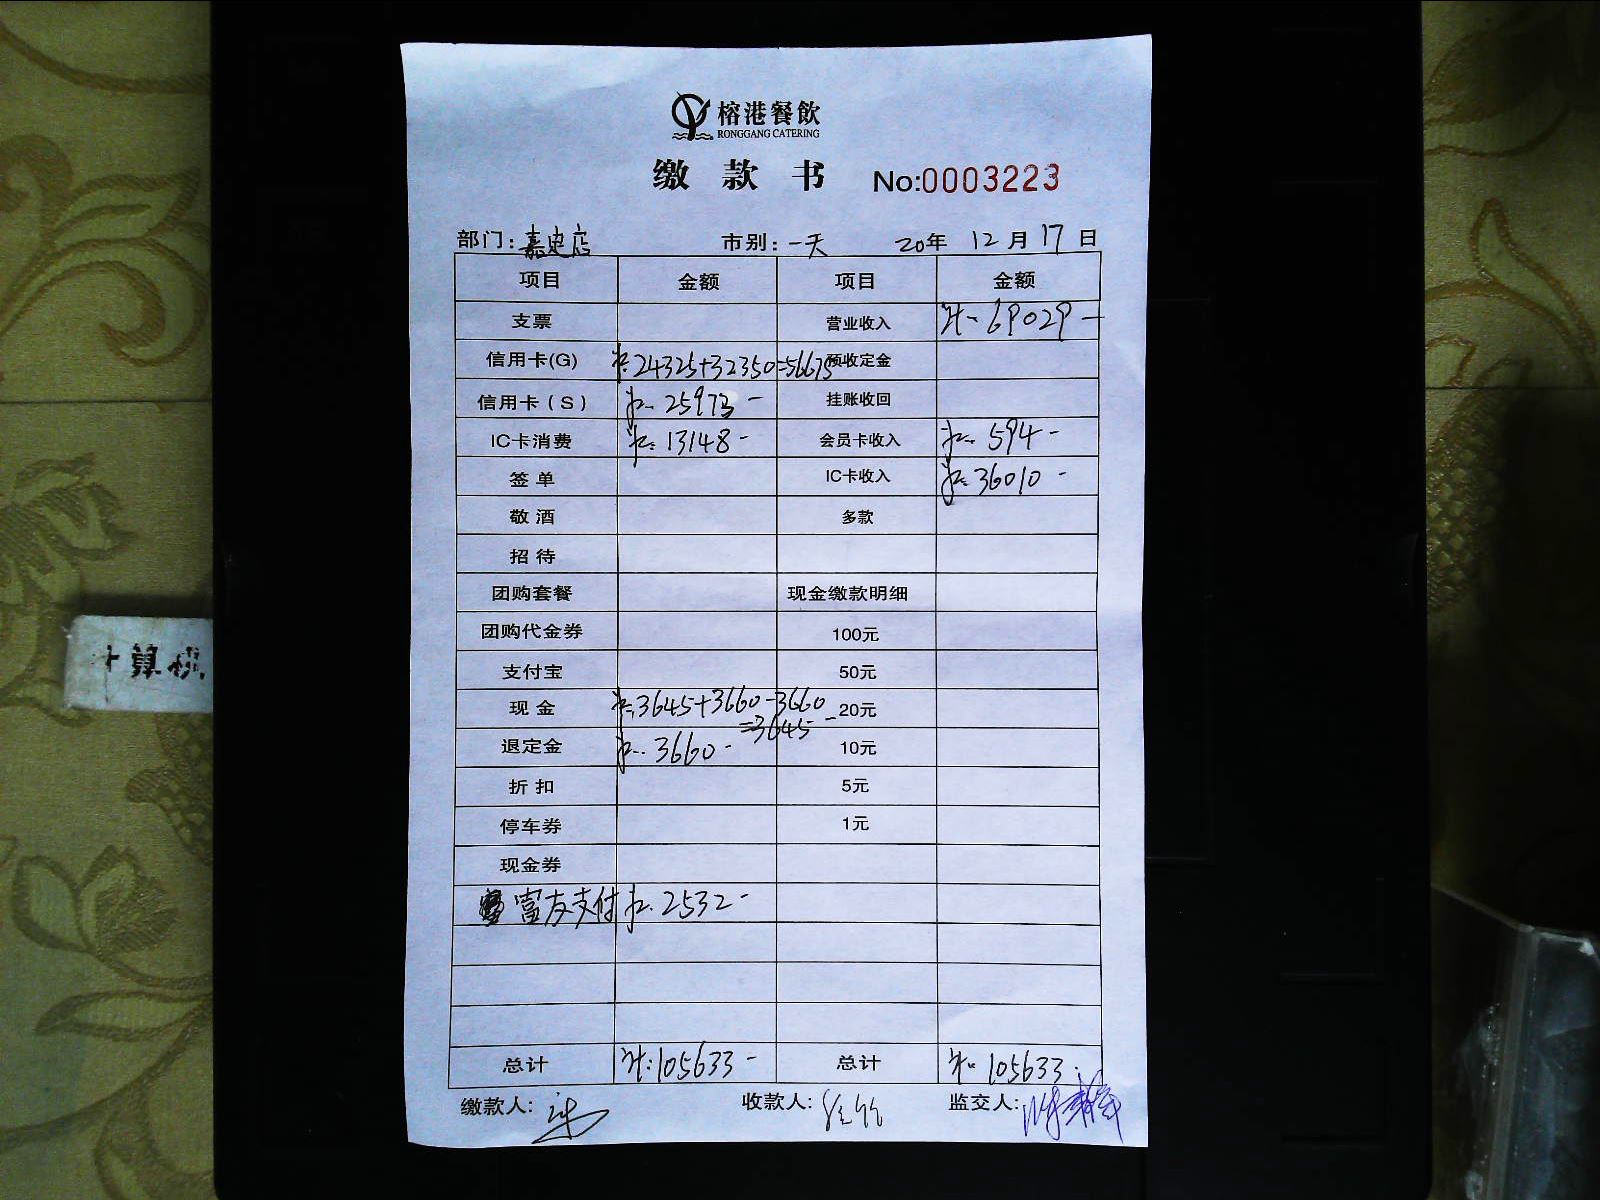 榕港餐飲
RONGGANG CATERING
缴 款 书 No:0003223
部门: 市别: 一天 20年 12月 17日
项目 金额 项目 金额
支票 营业收入 计: 69029 -
信用卡(G) 计: 24325+32350=56675 预收定金
信用卡(S) 计: 25973 - 挂账收回
IC卡消费 计: 13148 - 会员卡收入 计: 594 -
签单 IC卡收入 计: 36010 -
敬酒 多款
招待
团购套餐 现金缴款明细
团购代金券 100元
支付宝 50元
现金 计: 3645+3660-3660 20元
=3645 -
退定金 计: 3660 - 10元
折扣 5元
停车券 1元
现金券
富友支付 计: 2532 -
总计 计: 105633 - 总计 计: 105633 -
缴款人: 收款人: 监交人:
计算机